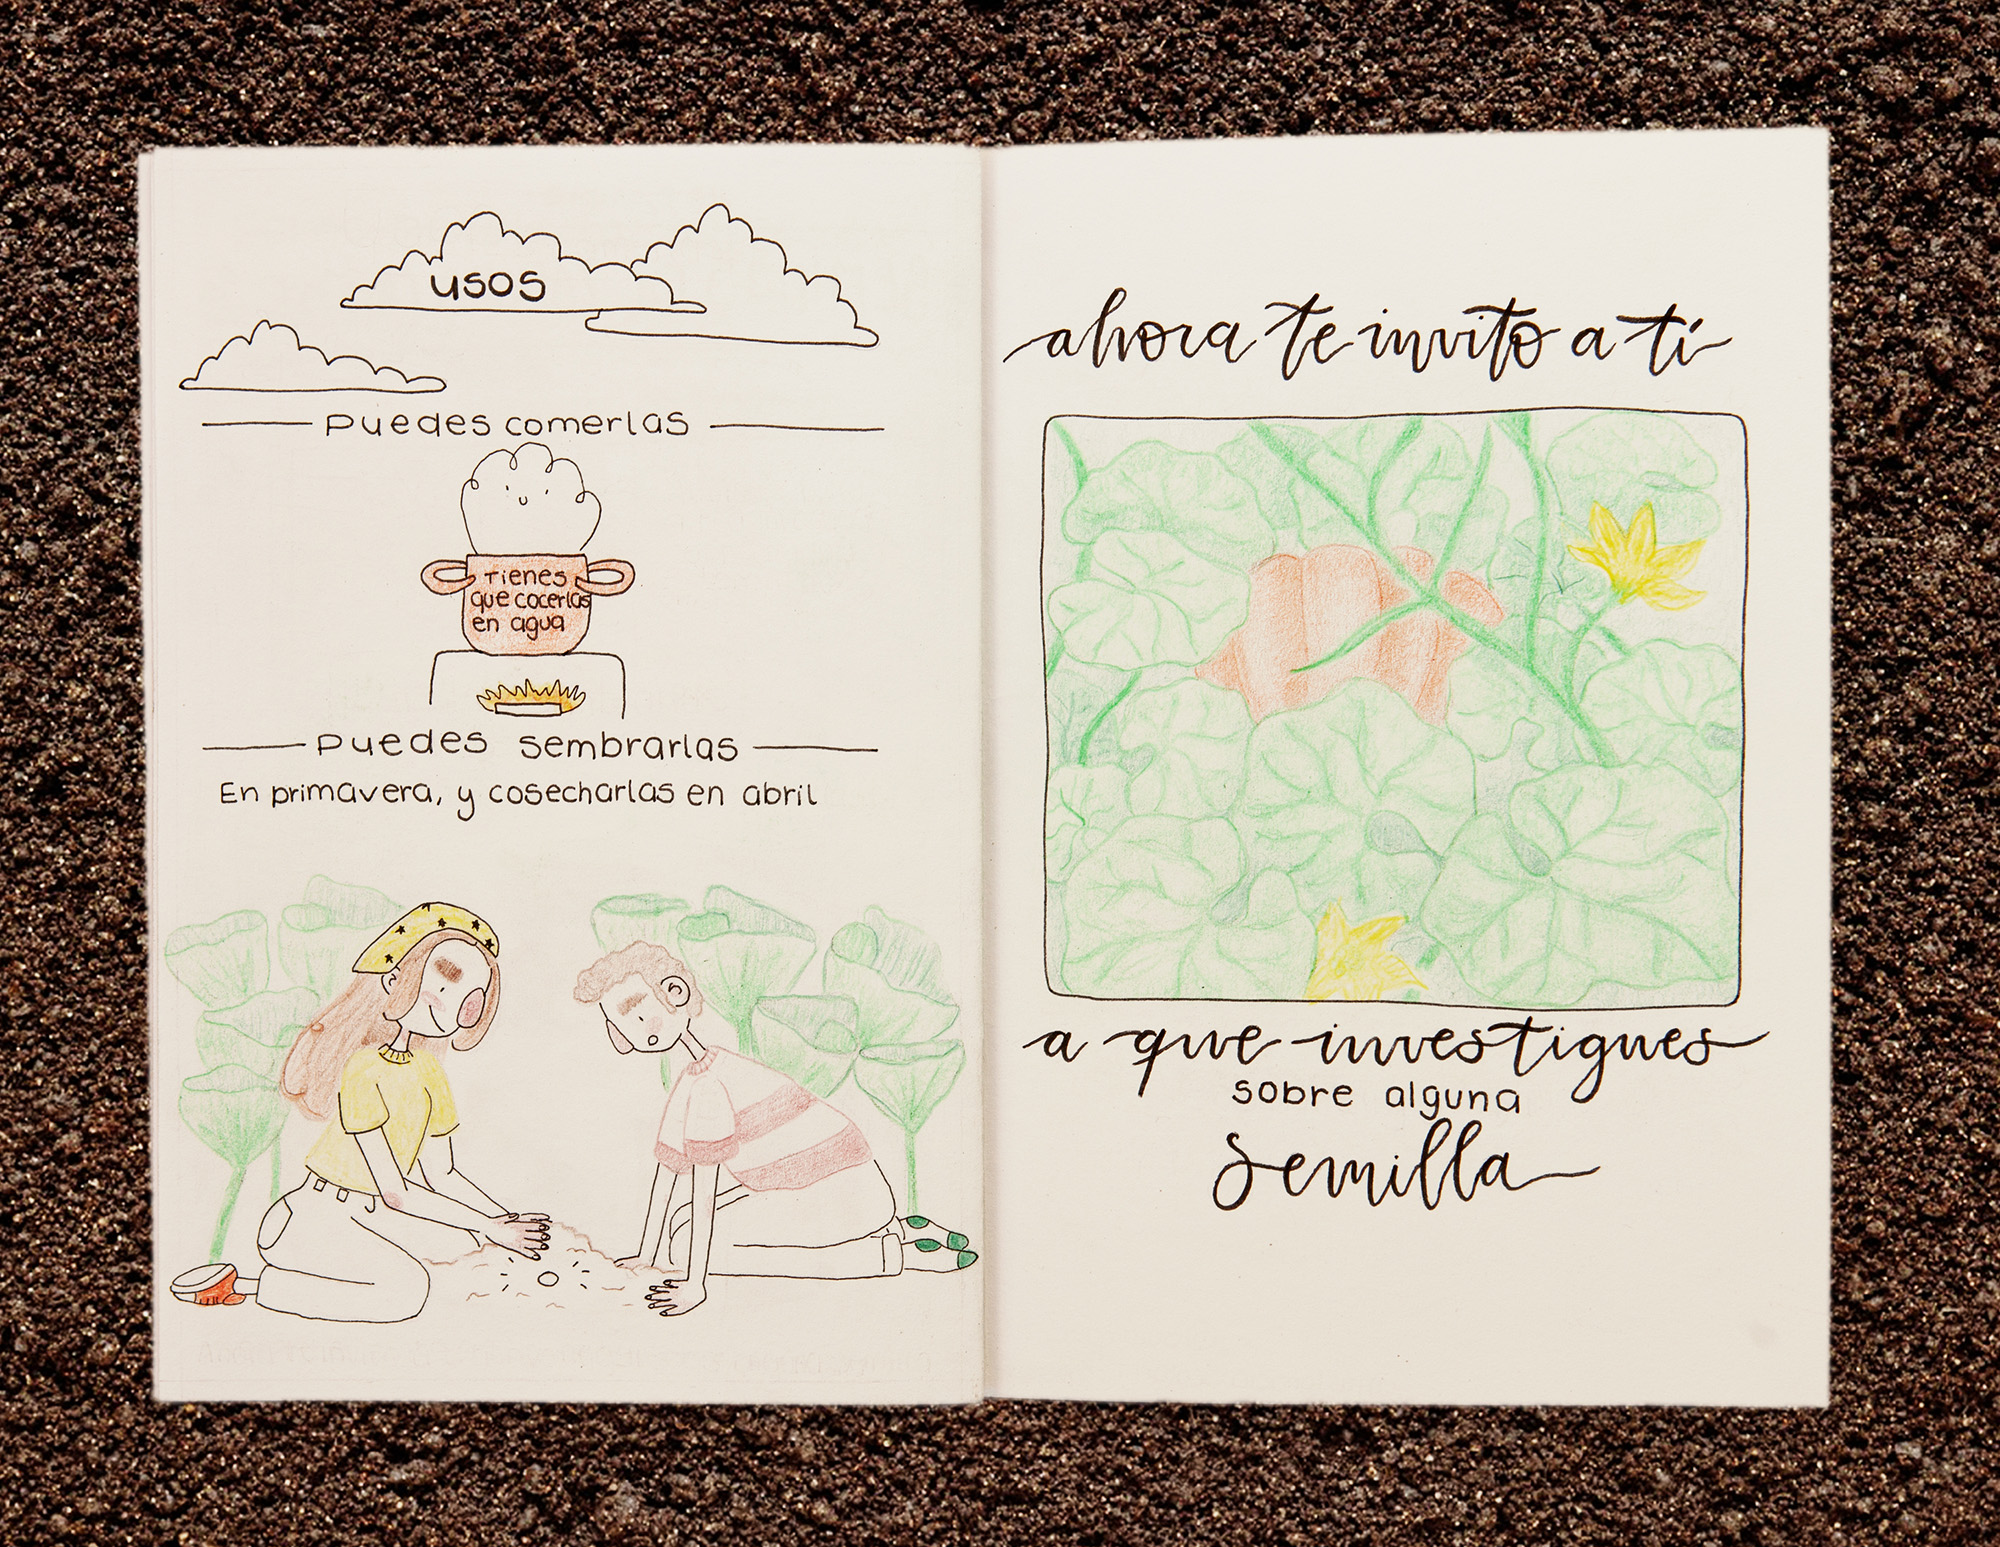 usos
puedes comerlas
Tienes
que cocerlas
en agua
puedes sembrarlas
En primavera, y cosecharlas en abril
ahora te invito a tí
a que investigues
sobre alguna
semilla